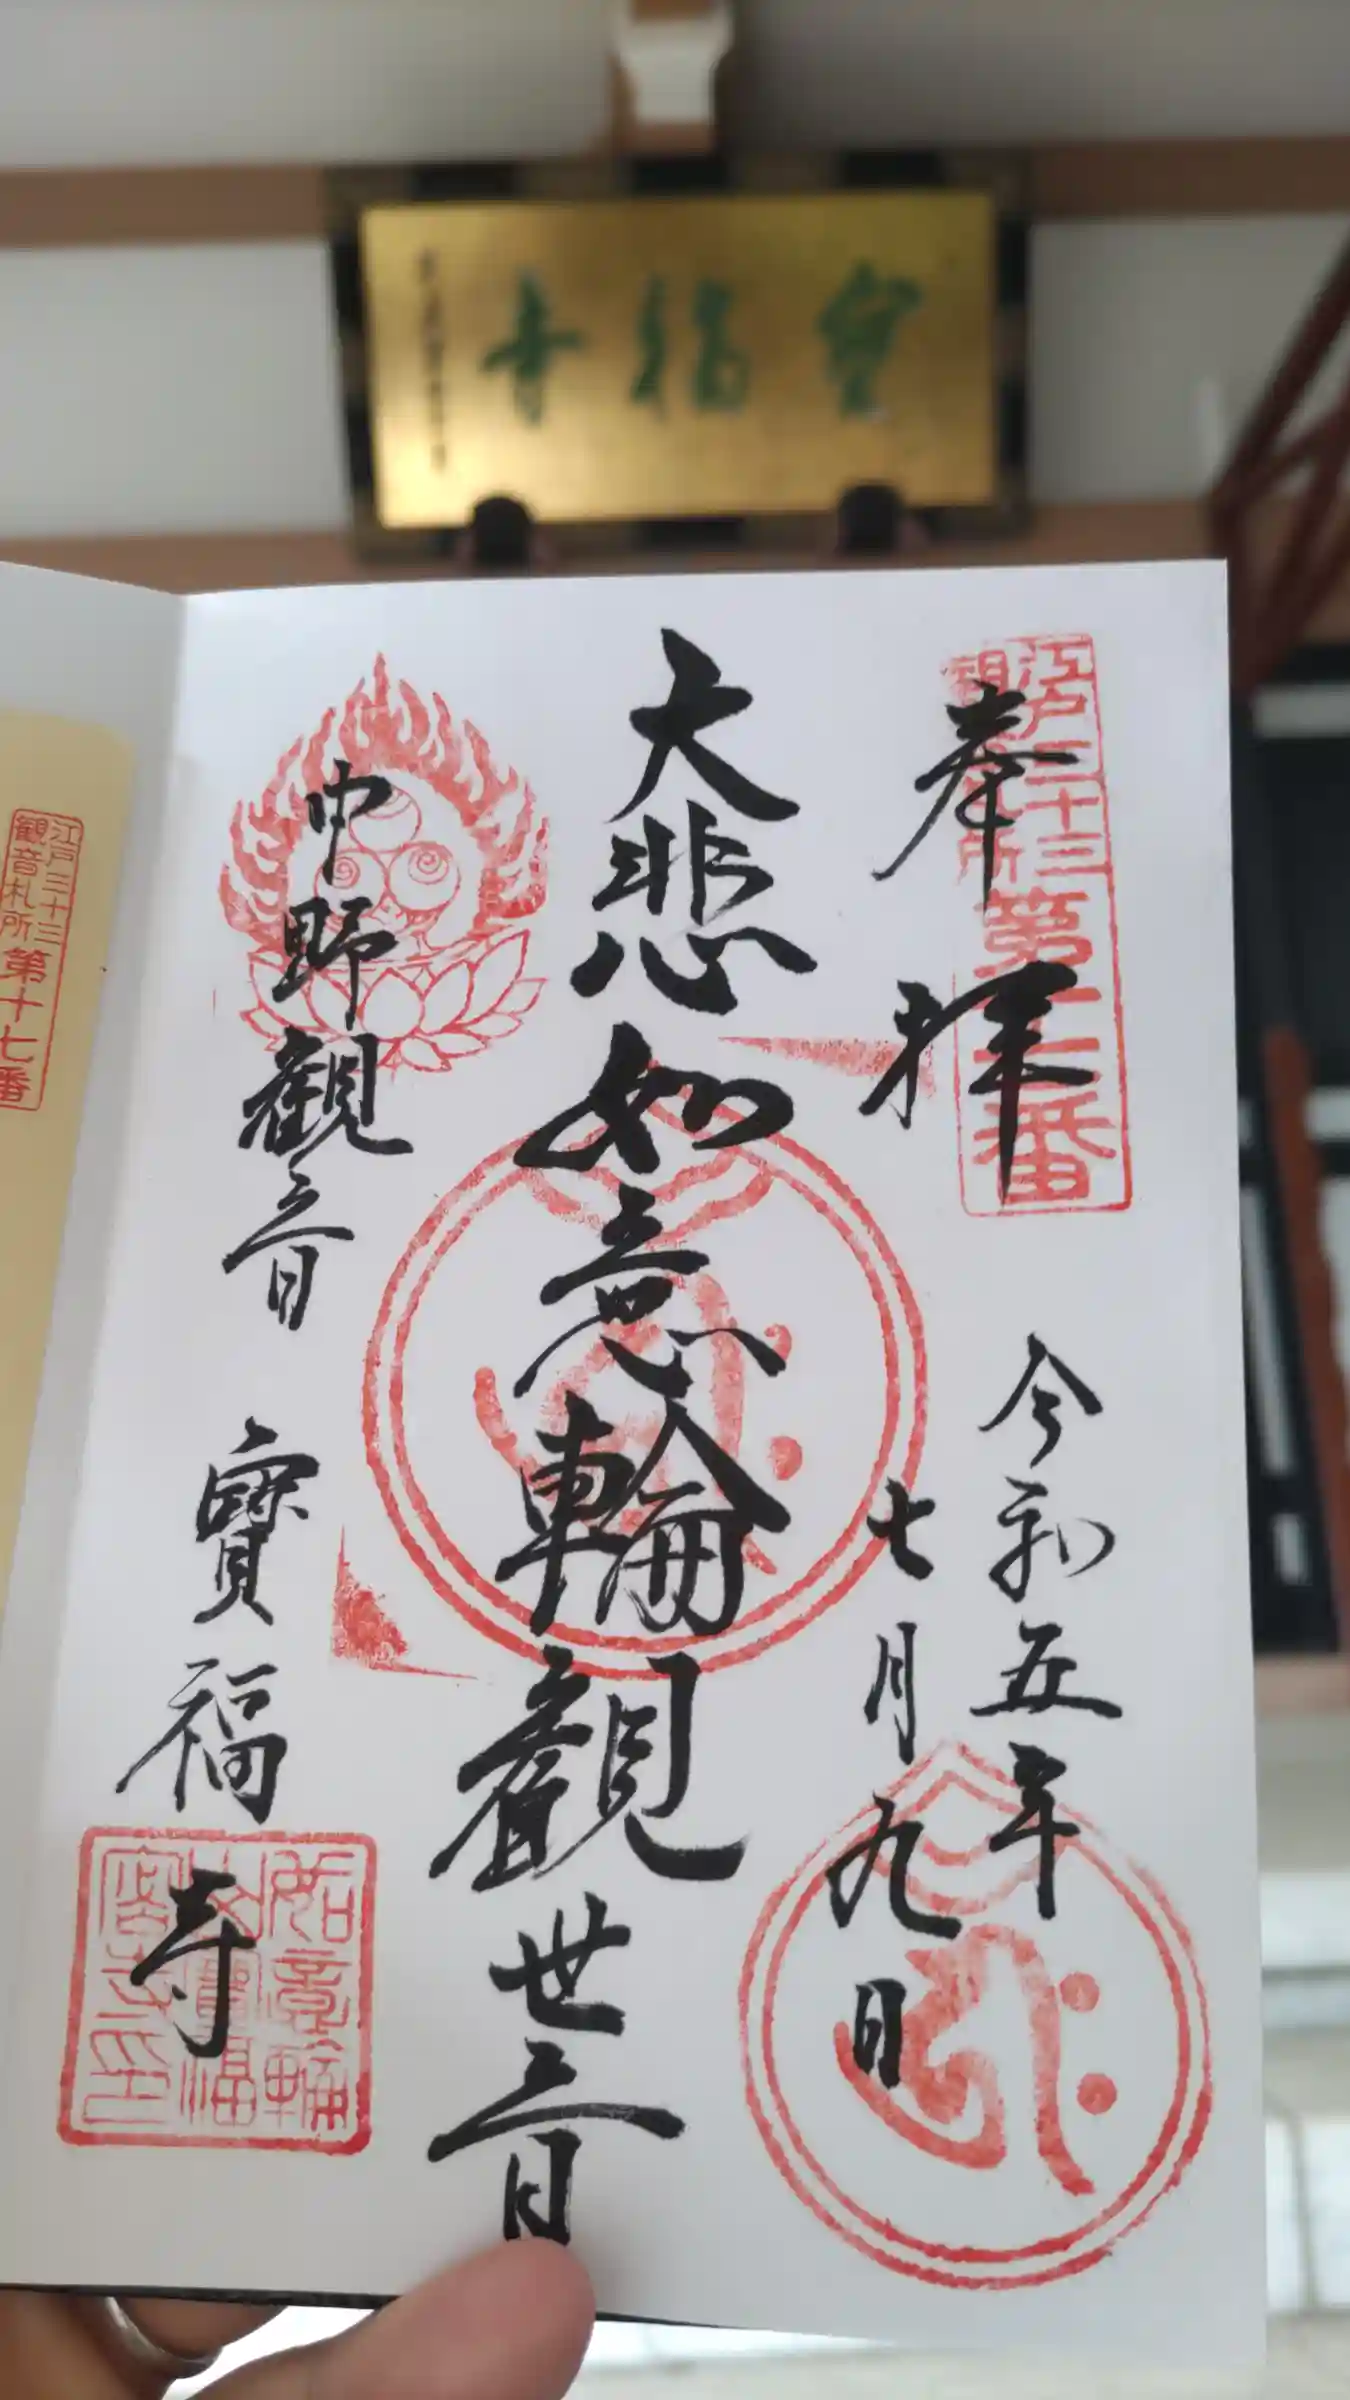 寶福寺
奉拝
江戸三十三
観音札所
第十七番
令和五年
七月九日
大悲如意輪観世音
中野観音
寶福寺
如意輪
寶福
江戸三十三
観音札所
第十七番